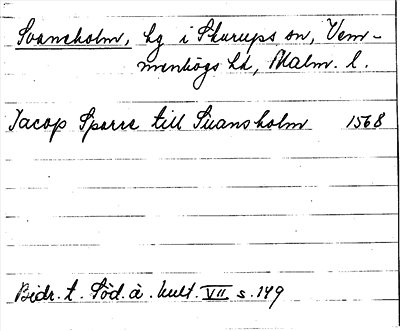 Svaneholm, hg i Skurups sn, Vem-
menhögs hd, Malm. l.
Jacop Sparre till Suansholm 1568
Bidr. t. Söd. å. kult. VII s. 149